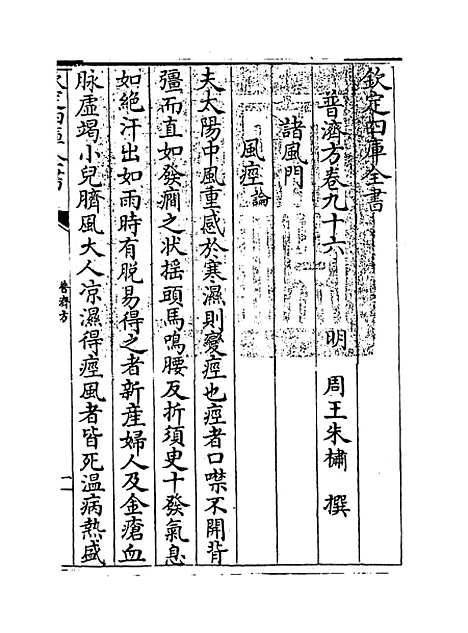 欽定四庫全書
普濟方卷九十六 明 周王朱橚 撰
諸風門
風痙論
夫太陽中風重感於寒濕則變痙也痙者口噤不開背
彊而直如發癎之狀揺頭馬鳴腰反折須史十發氣息
如絶汗出如雨時有脱易得之者新産婦人及金瘡血
脉虚竭小兒臍風大人凉濕得痙風者皆死温病熱盛
普濟方
一